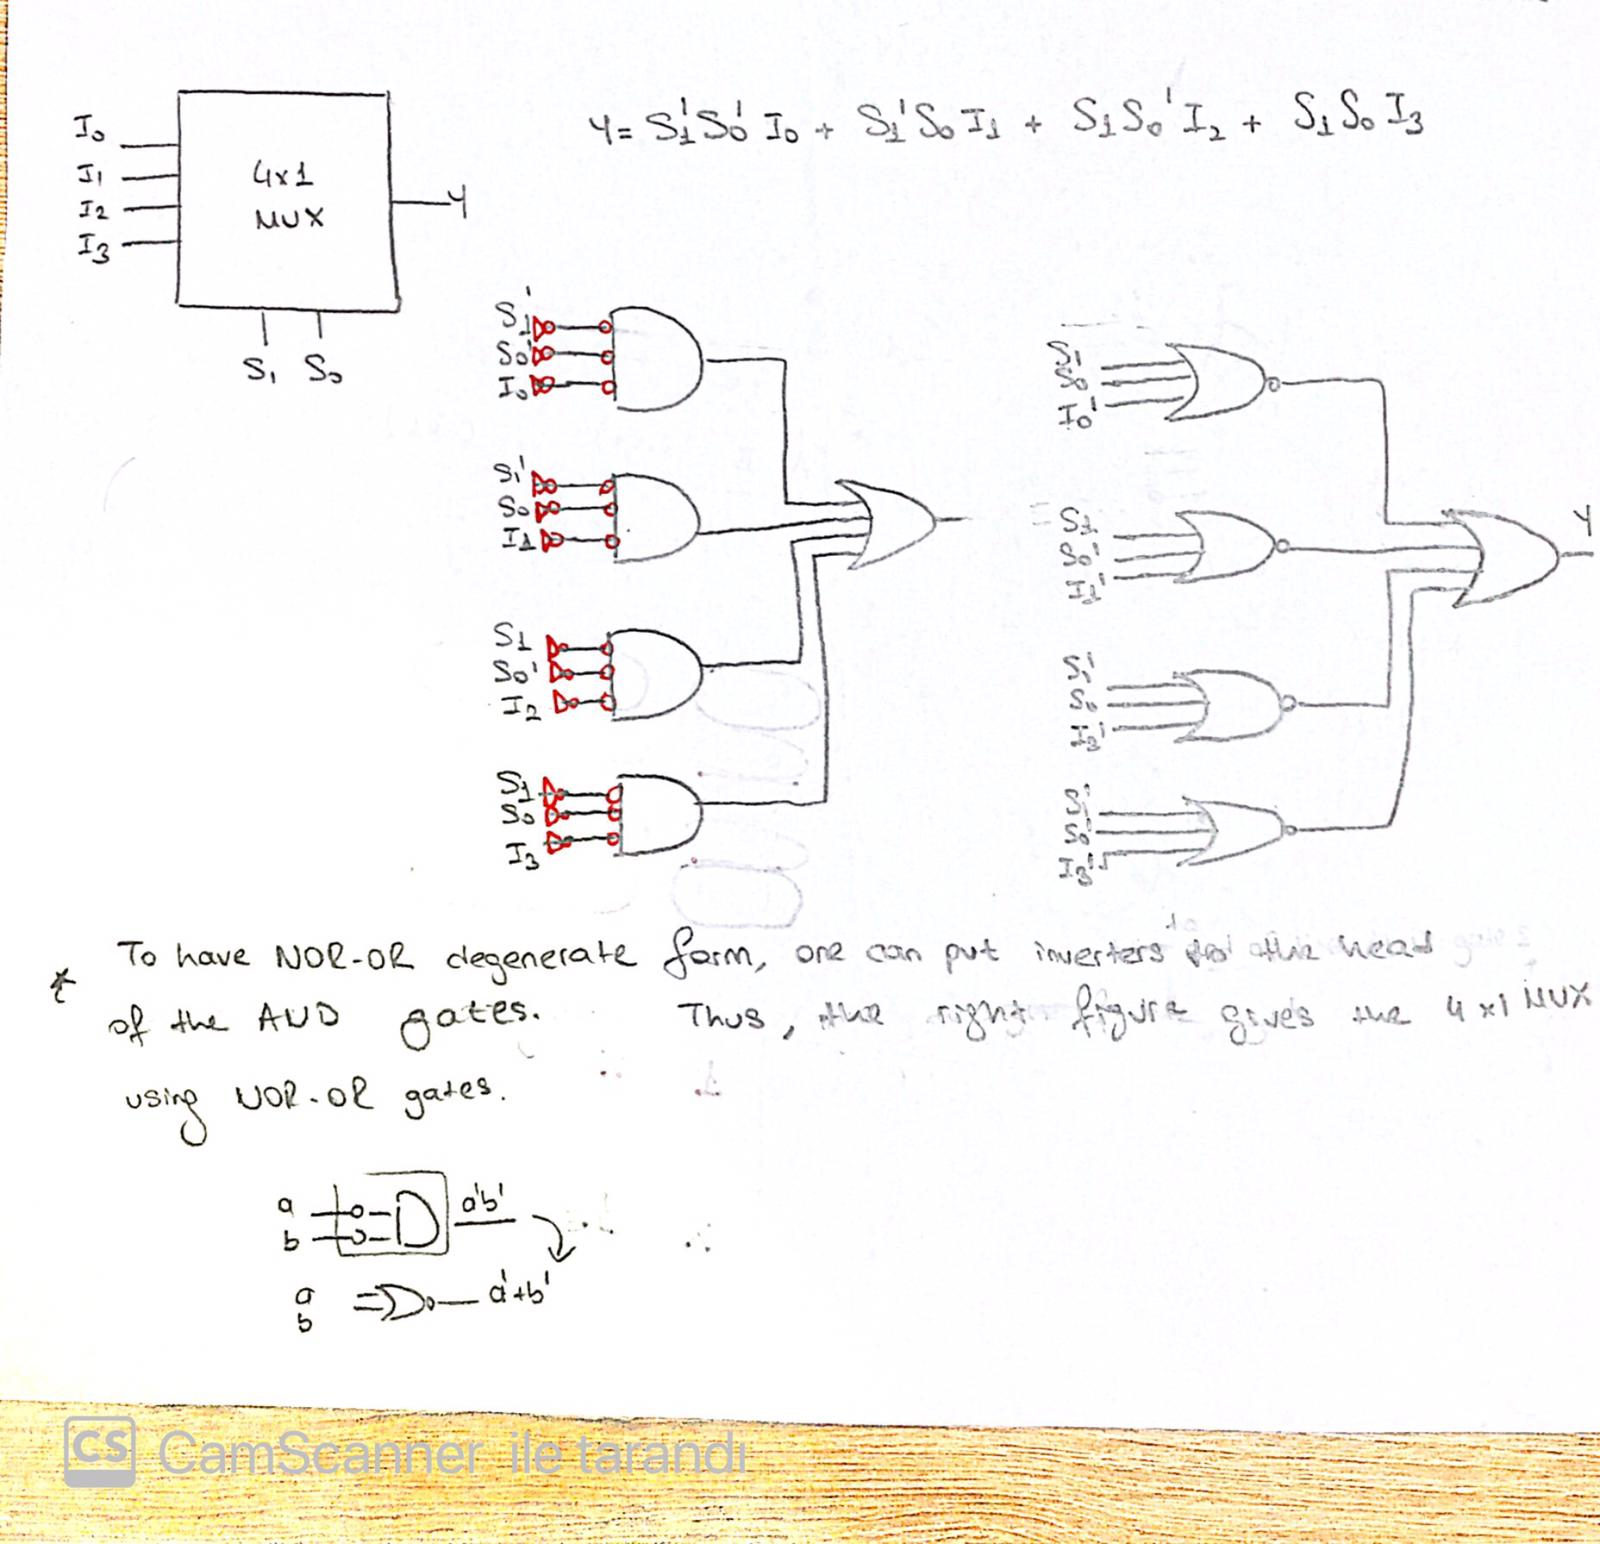 I0
I1
I2
I3
4x1
MUX
Y
S1 S0
Y = S1'S0' I0 + S1'S0 I1 + S1S0' I2 + S1S0 I3
S1'
S0'
I0
S1'
S0
I1
S1
S0'
I2
S1
S0
I3
I0'
S1
S0'
I1'
Y
S1'
S0
S1'
S0'
I3'
* To have NOR-OR degenerate form, one can put inverters to the head
of the AND gates. Thus, the right figure gives the 4x1 MUX
using NOR-OR gates.
a
b
a'b'
a
b
a'+b'
CS CamScanner ile tarandı